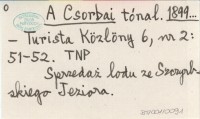 o
A Csorbai tónál. 1899...
- Turista Közlöny 6, nr 2:
51-52. TNP
Sprzedaż lodu ze Szczyrb-
skiego Jeziora.